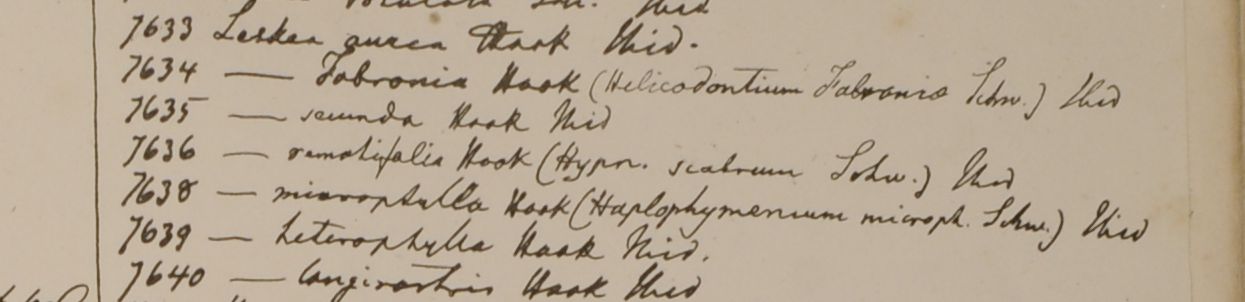 Ibid
7633 Leskea aurea Hook Ibid.
7634 — Fabronia Hook (Helicodontium Fabronia Schw.) Ibid
7635 — secunda Hook Ibid
7636 — remotifolia Hook (Hypn. scabrum Schw.) Ibid
7638 — microphylla Hook (Haplophymenium microph. Schw.) Ibid
7639 — heterophylla Hook Ibid.
7640 — longirostris Hook Ibid